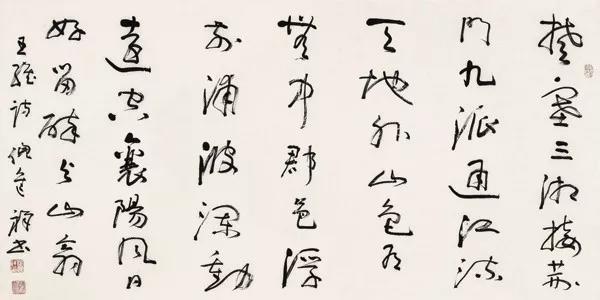 楚塞三湘接荆
門九派通江流
天地外山色有
無中郡邑浮
前浦波瀾動
遠空襄陽風日
好留醉与山翁
王維詩 祥書